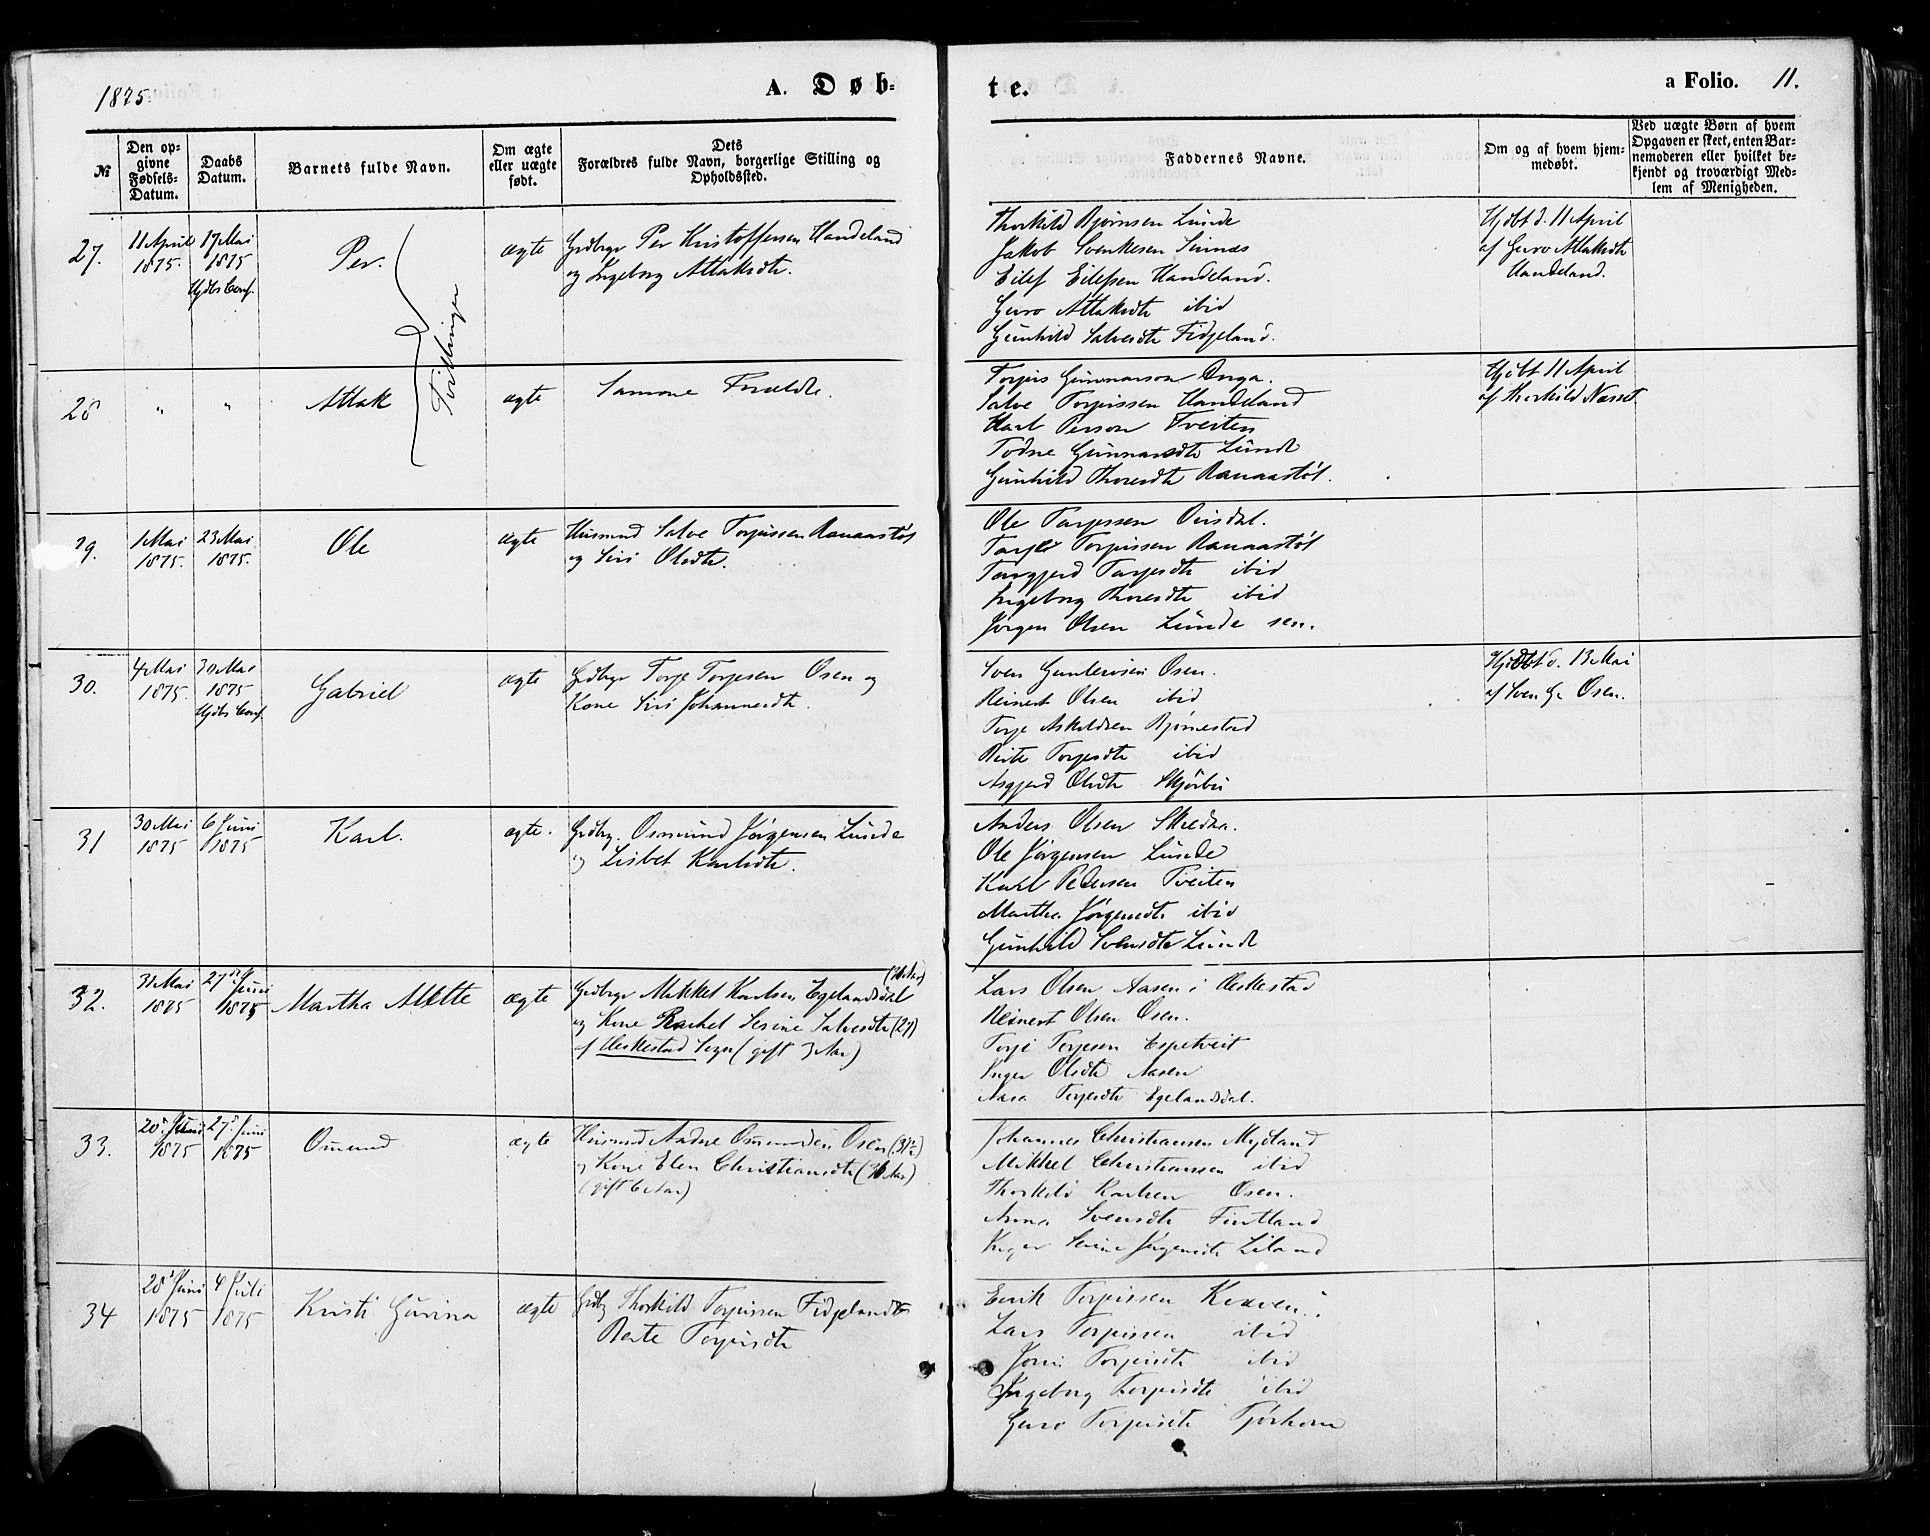 1875
A. Døb-
te.
a Folio. 11.
№
Den op-
givne
Fødsels-
Datum.
Daabs
Datum.
Barnets fulde Navn.
Om ægte
eller uægte
født.
Dets
Forældres fulde Navn, borgerlige Stilling og
Opholdssted.
Faddernes Navne.
Om og af hvem hjem-
medøbt.
Ved uægte Børn af hvem
Opgaven er skeet, enten Bar-
nemoderen eller hvilket be-
kjendt og troværdigt Med-
lem af Menigheden.
27.
11 April
1875.
17 Mai
1875
Hjdbs Conf.
Per.
Tvillinger
ægte
Grdbgr Per Kristoffersen Handeland
og Ingeborg Atlaksdtr.
Thorkild Bjørnsen Lunde
Jakob Svenkesen Sinnes
Eilef Eilefsen Handeland.
Guro Atlaksdtr ibid
Gunhild Salvesdtr Fidjeland.
Hjdbt d. 11 April
af Guro Atlaksdtr
Handeland.
28
"
"
Atlak
ægte
Samme Forældre.
Torjus Gunnarson
Salve Torjussen Handeland
Karl Person Tveiten
Todne Gunnarsdtr Lunde
Gunhild Thoresdtr Ranaastøl.
Hjdbt 11 April
af Thorkild Næset.
29.
1 Mai
1875.
23 Mai
1875.
Ole
ægte
Husmnd Salve Torjussen Ranaastøl
og Siri Olsdtr.
Ole Tarjessen Ousdal.
Tarjei Torjussen Ranaastøl
Torgjerd Tarjesdtr ibid
Ingeborg Thoresdtr ibid
Jørgen Olsen Lunde sen.
30.
4 Mai
1875.
30 Mai
1875
Hjdbs Conf.
Gabriel
ægte
Grdbgr Torje Torjesen Osen og
Kone Siri Johannesdtr.
Sven Gunleivsen Osen.
Reinert Olsen ibid
Torje Askildsen Bjørnestad
Berte Torjesdtr ibid
Asgjerd Olsdtr
Hjdbt d. 13 Mai
af Sven G. Osen.
31
30 Mai
1875
6 Juni
1875
Karl.
ægte.
Grdbg. Osmund Jørgensen Lunde
og Lisbet Karlsdtr.
Anders Olsen Skredaa.
Ole Jørgensen Lunde
Karl Pedersen Tveiten
Martha Jørgensdtr ibid
Gunhild Svensdtr Lunde
32.
31 Mai
1875
27de Juni
1875
Martha Alette
ægte
Grdbgr Mikkel Karlsen Egelandsdal
og Kone Rachel Serine Salvesdtr (27)
af Øiestad Sogn (gift 3 Aar)
Lars Olsen Aasen i
Reinert Olsen Osen.
Torje Torjesen Espetveit
Inger Olsdtr Aasen
Aasa Torjesdtr Egelandsdal.
33.
20de Juni
1875
27de Juni
1875
Osmund
ægte
Husmnd Andre Osmundsen Osen
og Kone Elen Christiansdtr
(gift 6 Aar)
Johannes Christiansen Mydland
Mikkel Christiansen ibid
Thorkild Karlsen Osen.
Anna Svensdtr Fintland
Inger Serine Jørgensdtr Liland
34
20de Juni
1875
4 Juli
1875
Kristi Gurina
ægte
Grdbg Thorkild Torjussen Fidjeland
Berte Torjusdtr
Eirik Torjussen Kvæven.
Lars Torjussen ibid
Joren Torjusdtr ibid
Ingeborg Torjusdtr ibid
Guro Torjusdtr Tjørhom